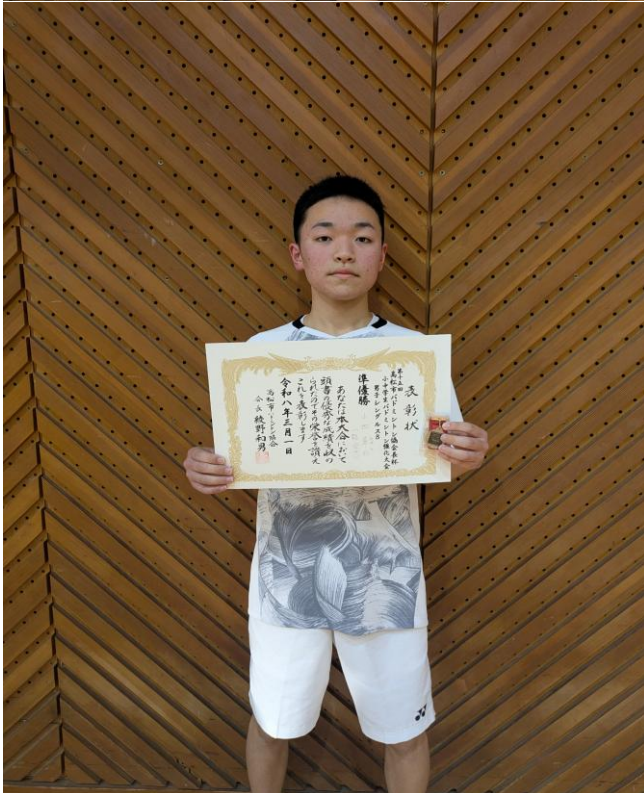 表彰状
第十五回
高松市バドミントン協会長杯
小中学生バドミントン強化大会
男子シングルス
準優勝
あなたは本大会において
頭書の優秀な成績を収め
られたのでその栄誉を讃え
これを表彰します
令和八年三月一日
高松市バドミントン協会
会長 綾野和男